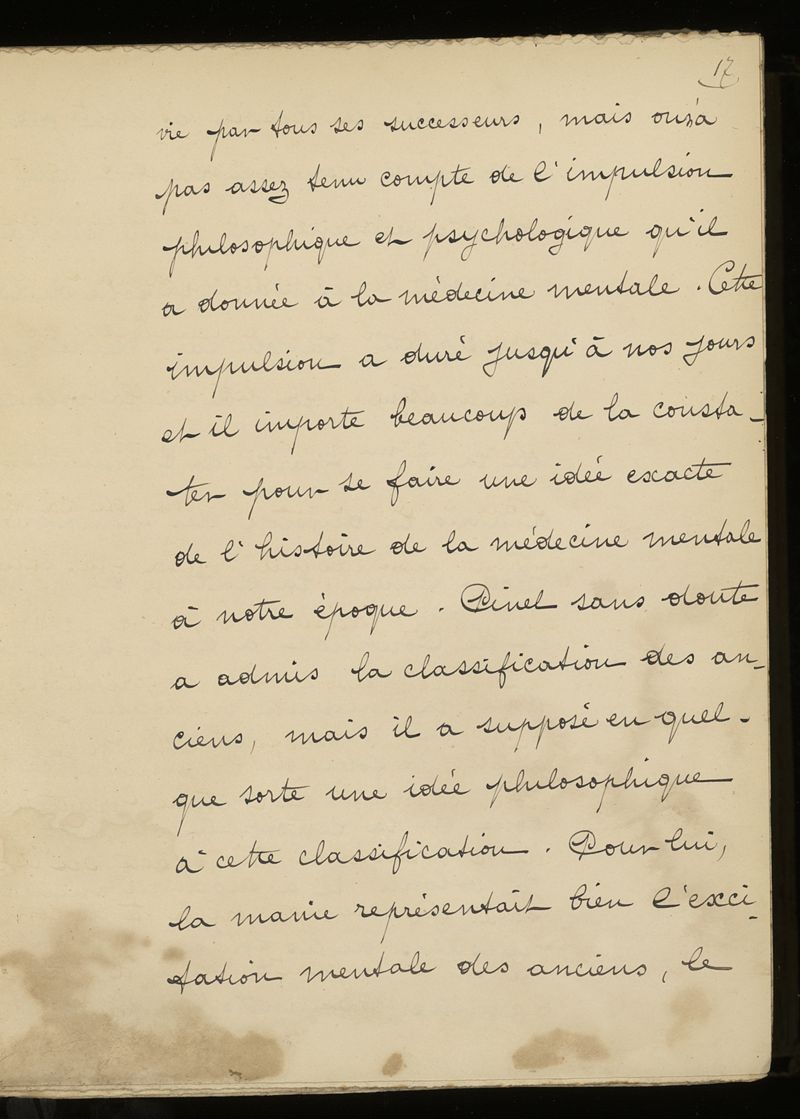 17
vie par tous ses successeurs, mais on n'a
pas assez tenu compte de l'impulsion
philosophique et psychologique qu'il
a donnée à la médecine mentale. Cette
impulsion a duré jusqu'à nos jours
et il importe beaucoup de la consta-
ter pour se faire une idée exacte
de l'histoire de la médecine mentale
à notre époque. Pinel sans doute
a admis la classification des an-
ciens, mais il a supposé en quel-
que sorte une idée philosophique
à cette classification. Pour lui,
la manie représentait bien l'exci-
tation mentale des anciens, le